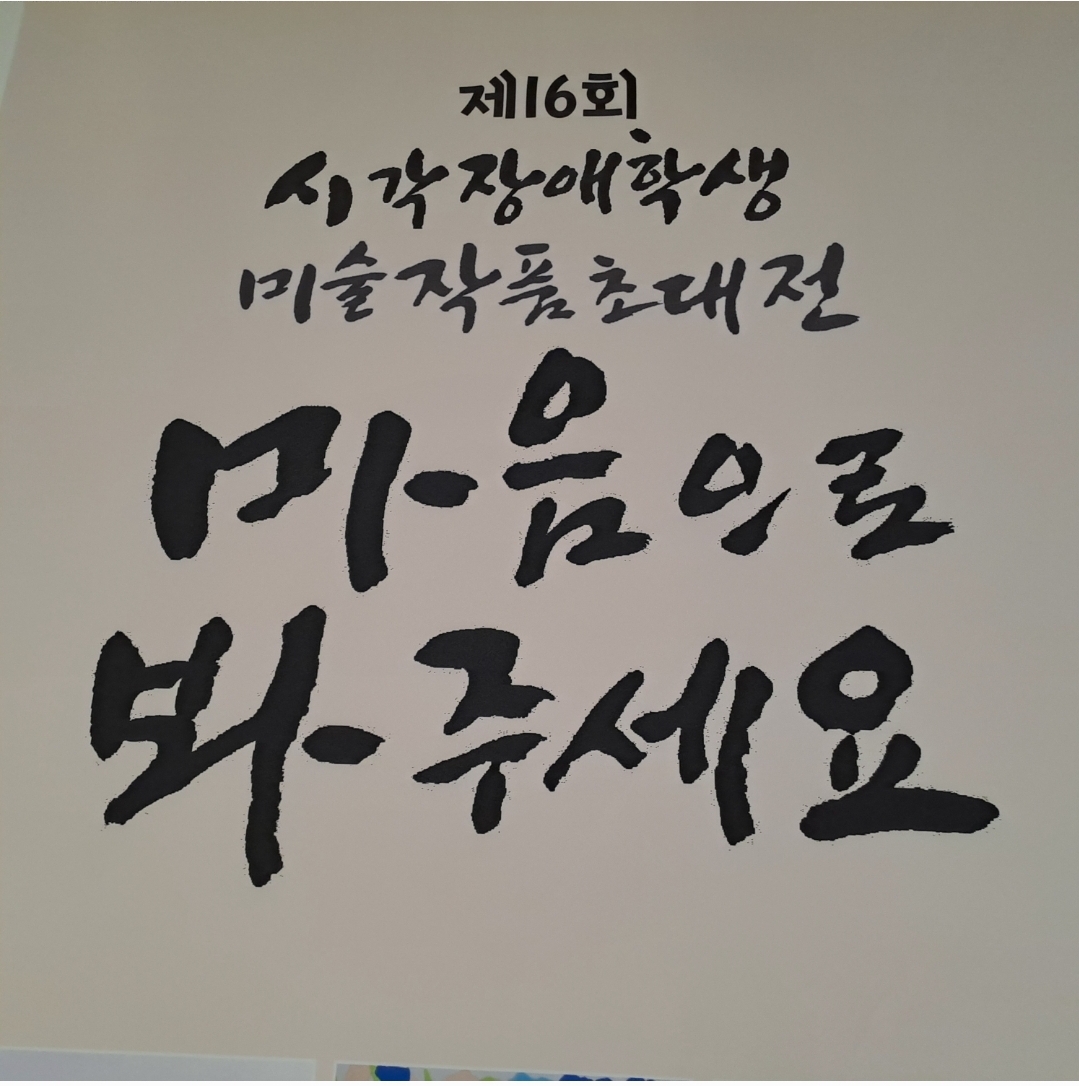 제16회
시각장애학생
미술작품초대전
마음으로
봐주세요